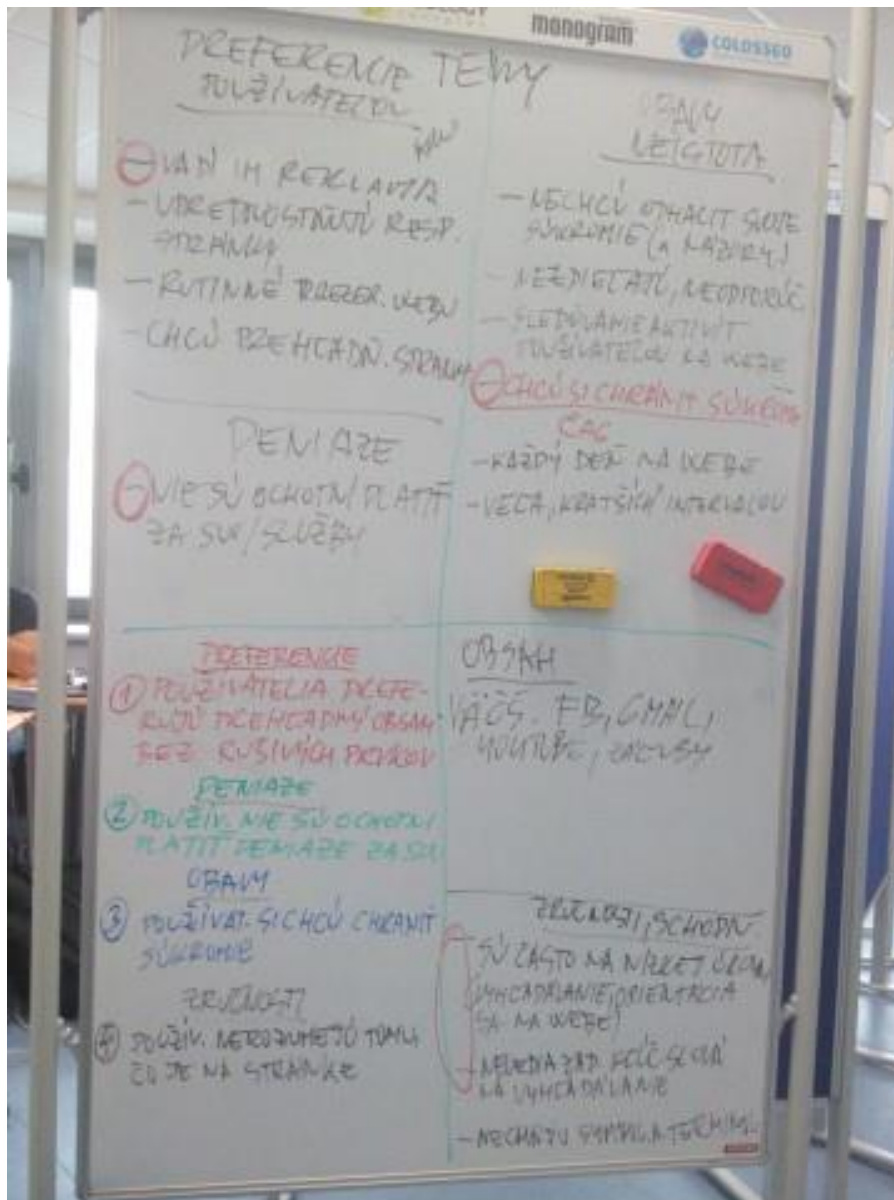 monogram
COLOSSEO
TÉMY
PREFERENCIE
POUŽÍVATEĽOV
VADÍ IM REKLAMA
- UPREDNOSTŇUJÚ RESP.
STRÁNKY
- RUTINNÉ PREZER. WEBU
- CHCÚ PREHĽADN. STRÁNKY
PENIAZE
NIE SÚ OCHOTNÍ PLATIŤ
ZA SW/SLUŽBY
OBAVY
NEISTOTA
- NECHCÚ SVOJE
SÚKROMIE (A NÁZORY)
- NEZDIEĽAJÚ, NEODPORÚČ
- SLEDOVANIE AKTIVÍT
POUŽÍVATEĽOV NA WEBE
CHCÚ SI CHRÁNIŤ SÚKROMIE
ČAS
- KAŽDÝ DEŇ NA WEBE
- VEĽA, KRATŠÍCH INTERVALOV
PREFERENCIE
1 POUŽÍVATELIA PREFE-
RUJÚ PREHĽADNÝ OBSAH
BEZ RUŠIVÝCH PRVKOV
PENIAZE
2 POUŽÍV. NIE SÚ OCHOTNÍ
PLATIŤ PENIAZE ZA SW
OBAVY
3 POUŽÍVAT. SI CHCÚ CHRÁNIŤ
SÚKROMIE
ZRUČNOSTI
4 POUŽÍV. NEROZUMEJÚ TOMU
ČO JE NA STRÁNKE
OBSAH
VÄČŠ. FB, GMAIL,
YOUTUBE, ZÁĽUBY
ZRUČNOSTI, SCHOPN.
SÚ ČASTO NA NÍZKEJ ÚROVNI
VYHĽADÁVANIE, ORIENTÁCIA
SA NA WEBE)
- NEVEDIA ZAD. KĽÚČ SLOVÁ
NA VYHĽADÁVANIE
- NECHÁPU SYMBOL. A TERMINOL